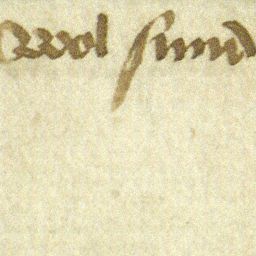 wol sund